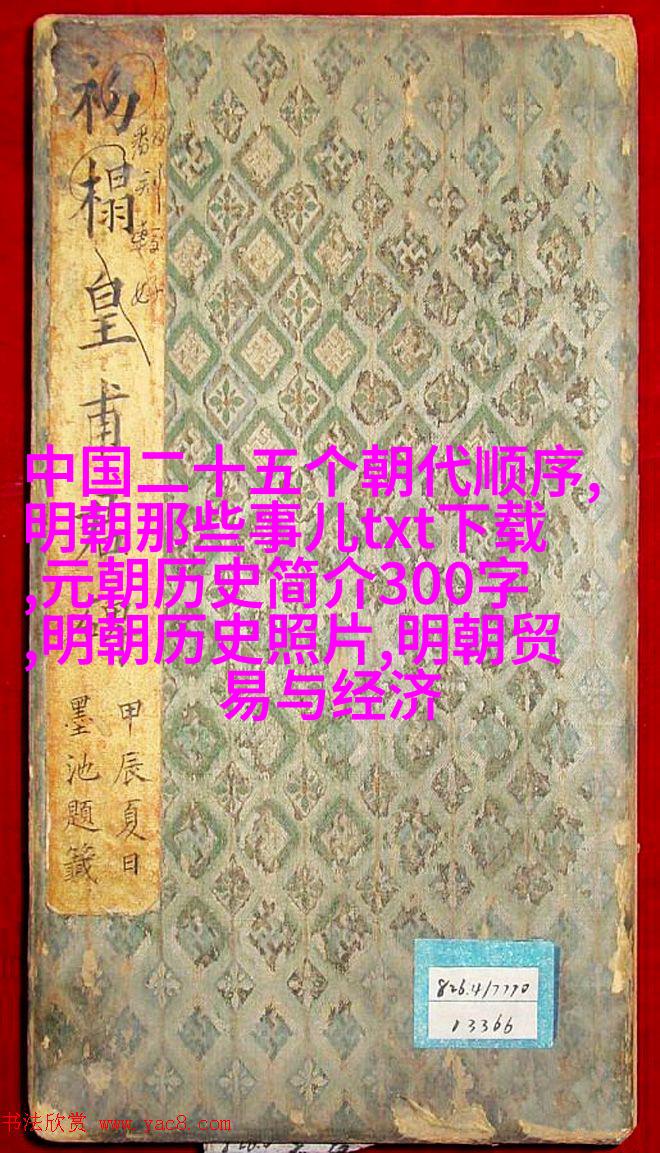 初榻皇甫
甲辰夏日
墨池題籤
中国二十五个朝代顺序,
明朝那些事儿txt下载
,元朝历史简介300字
,明朝历史照片,明朝贸
易与经济
826.4/7770
13366
书法欣赏 www.yac8.com